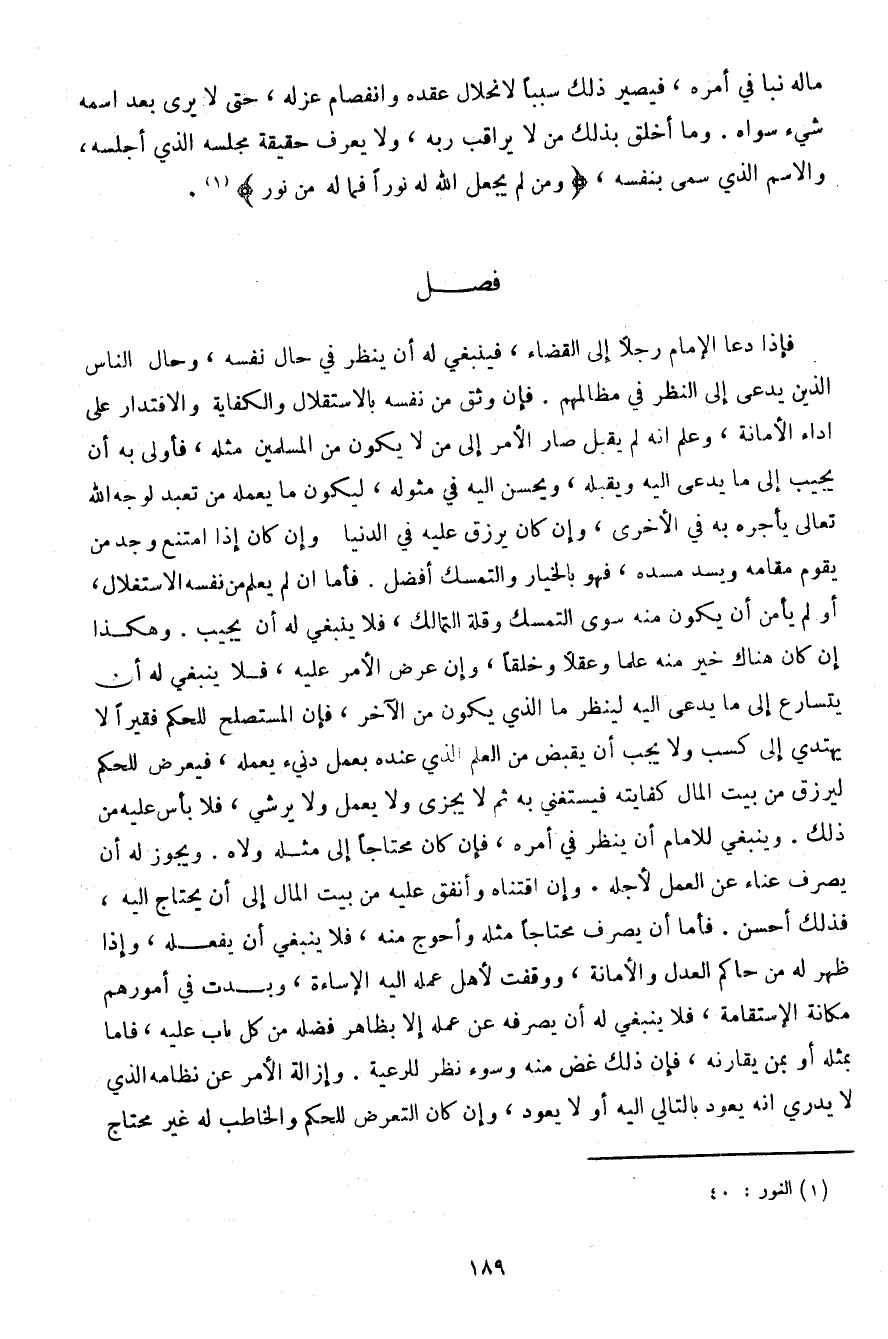 ماله نبا في أمره ، فيصير ذلك سبباً لانحلال عقده وانفصام عزله ، حتى لا يرى بعد اسمه
شيء سواه . وما أخلق بذلك من لا يراقب ربه ، ولا يعرف حقيقة مجلسه الذي أجلسه ،
والاسم الذي سمى بنفسه ، ﴿ ومن لم يجعل الله له نوراً فما له من نور ﴾ (١) .
فصـــــل
فإذا دعا الإمام رجلاً إلى القضاء ، فينبغي له أن ينظر في حال نفسه ، وحال الناس
الذين يدعى إلى النظر في مظالمهم . فإن وثق من نفسه بالاستقلال والكفاية والاقتدار على
اداء الأمانة ، وعلم انه لم يقبل صار الأمر إلى من لا يكون من المسلمين مثله ، فأولى به أن
يجيب إلى ما يدعى اليه ويقبله ، ويحسن اليه في مثوله ، ليكون ما يعمله من تعبد لوجه الله
تعالى يأجره به في الأخرى ، وإن كان يرزق عليه في الدنيا وإن كان إذا امتنع وجد من
يقوم مقامه ويسد مسده ، فهو بالخيار والتمسك أفضل . فأما ان لم يعلم من نفسه الاستغلال ،
أو لم يأمن أن يكون منه سوى التمسك وقلة التمالك ، فلا ينبغي له أن يجيب . وهكـــذا
إن كان هناك خير منه علما وعقلاً وخلقاً ، وإن عرض الأمر عليه ، فـــلا ينبغي له أن
يتسارع إلى ما يدعى اليه لينظر ما الذي يكون من الآخر ، فإن المستصلح للحكم فقيراً لا
يهتدي إلى كسب ولا يجب أن يقبض من العلم الذي عنده بعمل دنيء يعمله ، فيعرض للحكم
ليرزق من بيت المال كفايته فيستغني به ثم لا يجزى ولا يعمل ولا يرشي ، فلا بأس عليه من
ذلك . وينبغي للامام أن ينظر في أمره ، فإن كان محتاجاً إلى مثـــله ولاه . ويجوز له أن
يصرف عناء عن العمل لأجله . وإن اقتناه وأنفق عليه من بيت المال إلى أن يحتاج اليه ،
فذلك أحسن . فأما أن يصرف محتاجاً مثله وأحوج منه ، فلا ينبغي أن يفعـــله ، وإذا
ظهر له من حاكم العدل والأمانة ، ووقفت لأهل عمله اليه الإساءة ، وبـــدت في أمورهم
مكانة الإستقامة ، فلا ينبغي له أن يصرفه عن عمله إلا بظاهر فضله من كل باب عليه ، فاما
بمثله أو بمن يقارنه ، فإن ذلك غض منه وسوء نظر للرعية . وإزالة الأمر عن نظامه الذي
لا يدري انه يعود بالتالي اليه أو لا يعود ، وإن كان التعرض للحكم والخاطب له غير محتاج
(١) النور : ٤٠
١٨٩